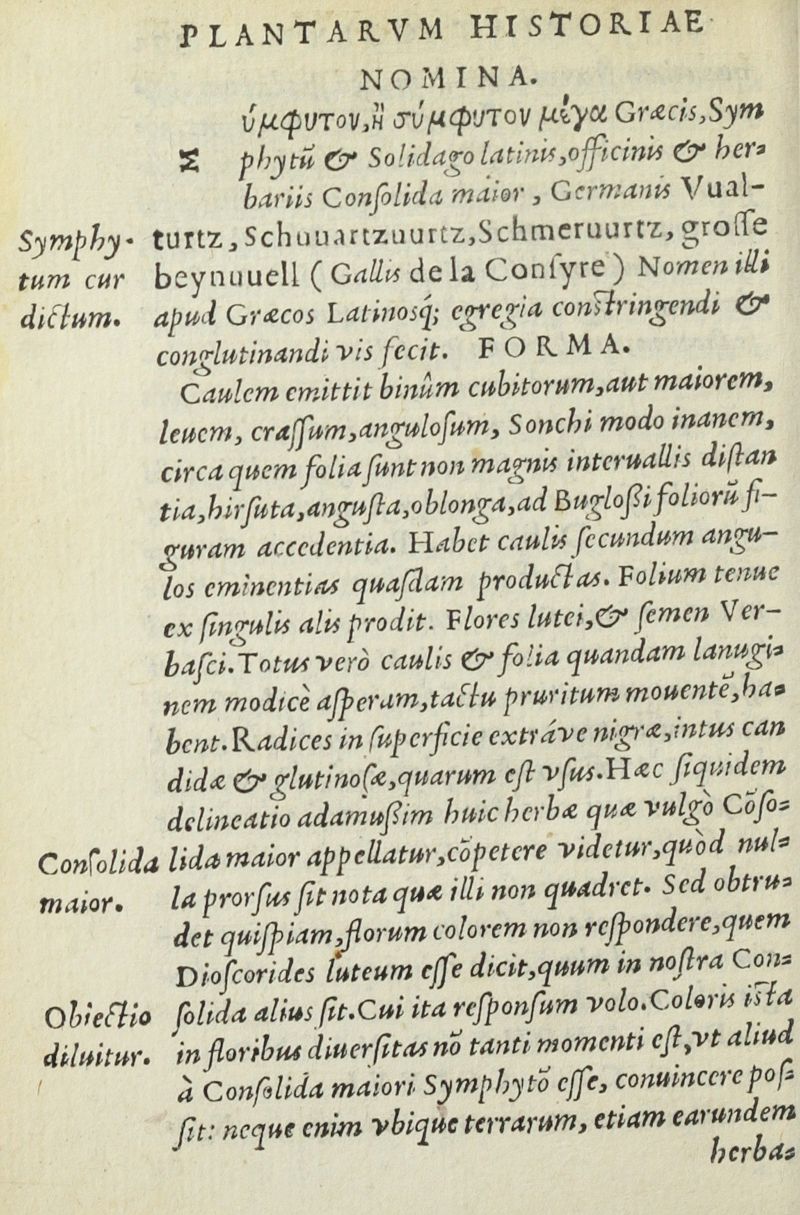 PLANTARVM HISTORIAE
NOMINA.
Σύμφυτον, ἢ σύμφυτον μέγα Græcis, Sym
phytũ & Solidago latinis, officinis & her=
bariis Conſolida maior, Germanis Vual-
turtz, Schuuartzuurtz, Schmeruurtz, groſſe
beynuuell (Gallis de la Conſyre) Nomen illi
apud Græcos Latinosq́; egregia conſtringendi &
conglutinandi vis fecit. FORMA.
Symphy-
tum cur
dictum.
Caulem emittit binûm cubitorum, aut maiorem,
leuem, craſſum, anguloſum, Sonchi modo inanem,
circa quem folia ſunt non magnis interuallis diſtan
tia, hirſuta, anguſta, oblonga, ad Bugloßi foliorũ fi-
guram accedentia. Habet caulis ſecundum angu-
los eminentias quaſdam productas. Folium tenue
ex ſingulis alis prodit. Flores lutei, & ſemen Ver-
baſci. Totus verò caulis & folia quandam lanugi=
nem modicè aſperam, tactu pruritum mouentẽ, ha=
bent. Radices in ſuperficie extráve nigræ, intus can
didæ & glutinoſæ, quarum eſt vſus. Hæc ſiquidem
delineatio adamußim huic herbæ quæ vulgò Cõſo=
lida maior appellatur, cõpetere videtur, quòd nul=
la prorſus ſit nota quæ illi non quadret. Sed obtru=
det quiſpiam, florum colorem non reſpondere, quem
Dioſcorides luteum eſſe dicit, quum in noſtra Con=
ſolida alius ſit. Cui ita reſponſum volo. Coloris iſta
in floribus diuerſitas nõ tanti momenti eſt, vt aliud
à Conſolida maiori Symphytõ eſſe, conuincere poſ=
ſit: neque enim vbique terrarum, etiam earundem
Conſolida
maior.
Obiectio
diluitur.
herba=